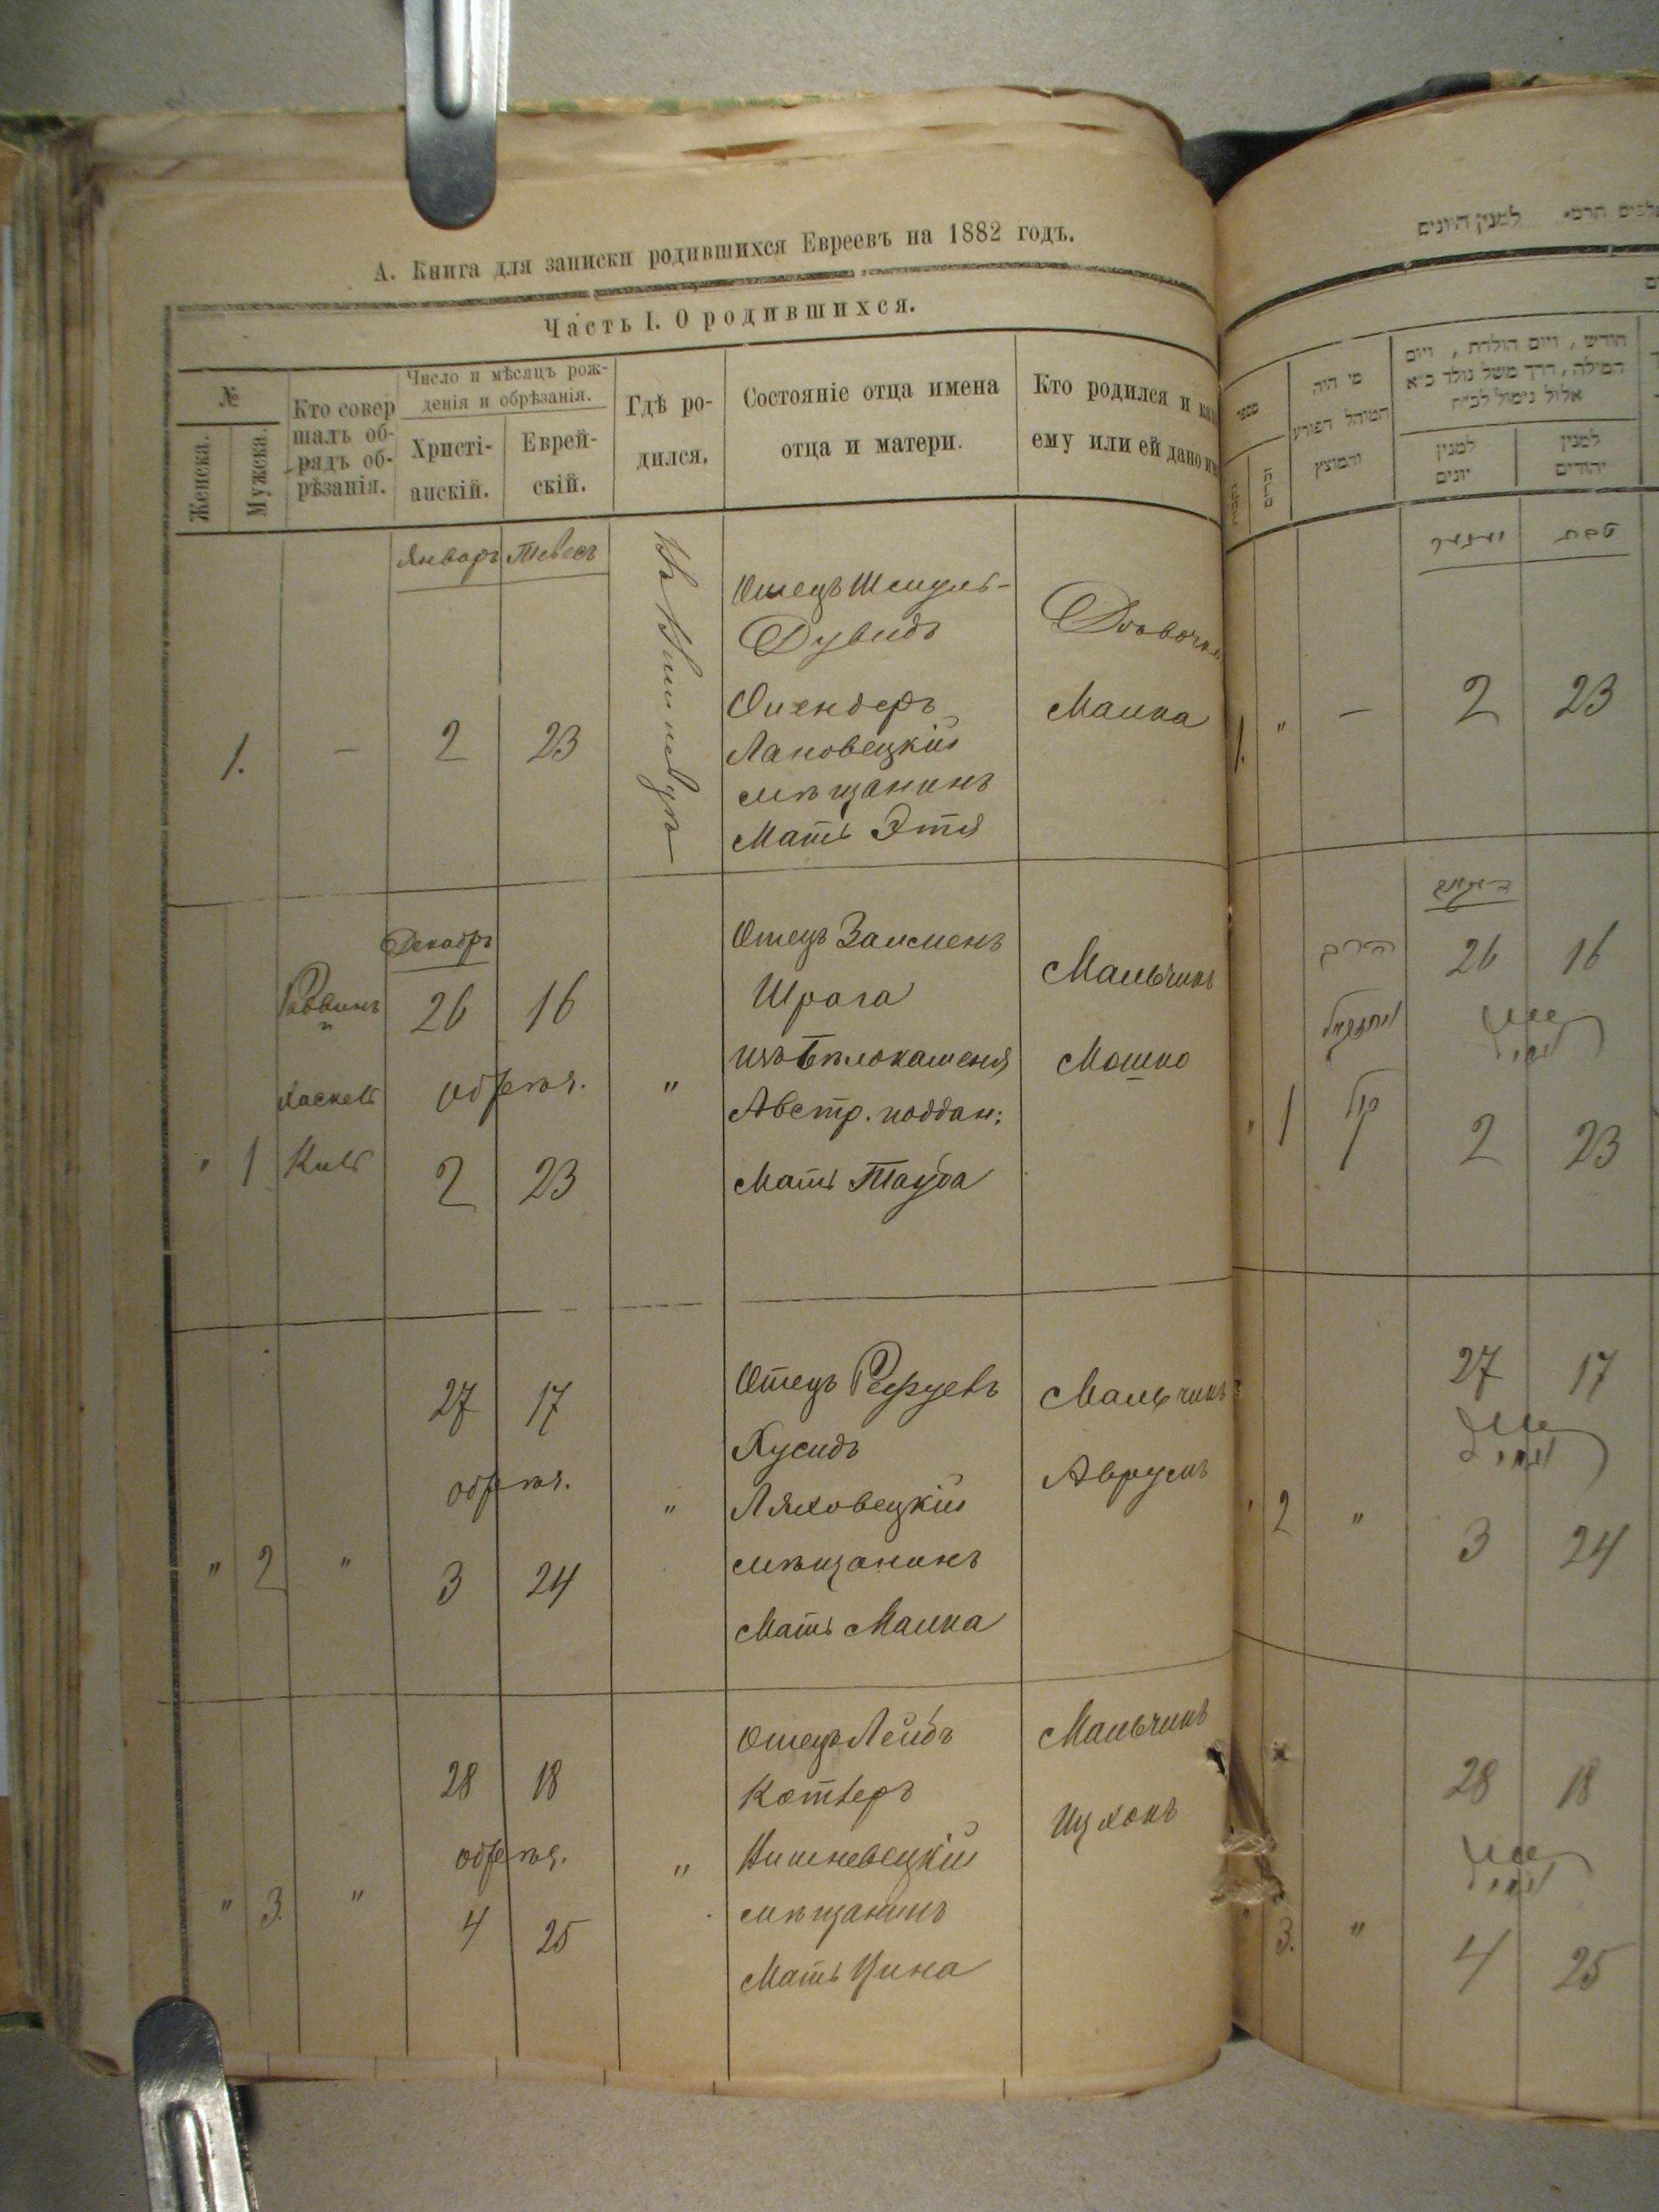 А. Книга для записки родившихся Евреевъ на 1882 годъ.
Часть I. О родившихся.
№
Женска.
Мужска.
Кто совер
шалъ об-
рядъ об-
рѣзанія.
Число и мѣсяцъ рож-
денія и обрѣзанія.
Христі-
анскій.
Еврей-
скій.
Гдѣ ро-
дился.
Состояніе отца имена
отца и матери.
Кто родился и как
ему или ей дано им
Январь Тевесъ
1. — 2 23
Въ Вишневцѣ
Отецъ Шмуль-
Дувидъ
Оксендлеръ
Лановецкій
мѣщанинъ
Мать Этя
Дѣвочка
Малка
Декабрь
Раввинъ
и
Хаскель
Киль
" 1
26 16
обрѣз.
2 23
"
Отецъ Залменъ
Шрага
изъ Бѣлокаменя
Австр. поддан:
Мать Тауба
Мальчикъ
Мошко
27 17
обрѣз.
" 2 " 3 24
"
Отецъ
Хусидъ
Ляховецкій
мѣщанинъ
Мать Малка
Мальчикъ
Аврумъ
28 18
обрѣз.
" 3. " 4 25
"
Отецъ Лейбъ
Котлеръ
Вишневецкій
мѣщанинъ
Мать Цина
Мальчикъ
Ицхокъ
למנין היונים
מספר
זכרים
מי היה
המוהל הפורע
והמוצץ
חודש , ויום הולדת , ויום
המילה , הדך משל נולד כ״א
אלול נימול לכ״ח
למנין
יונים
למנין
יהודים
יאנואר
טבת
1. " — 2 23
דיקאבר
26 16
" 1
2 23
27 17
" 2 " 3 24
28 18
3. " 4 25